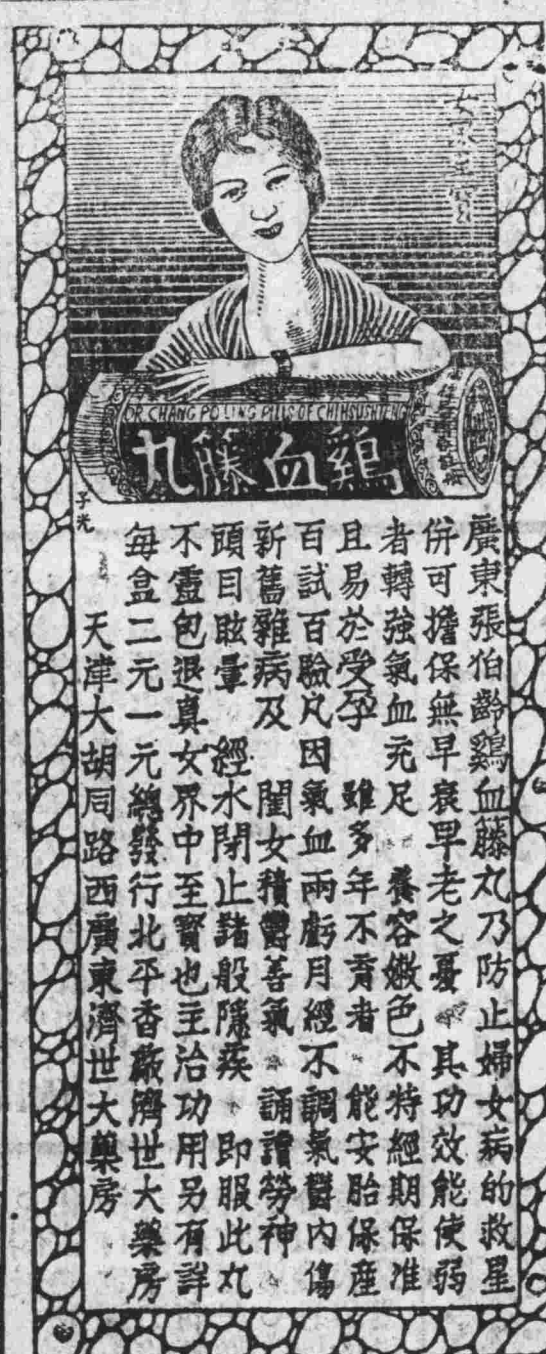 女界至寶
DR CHANG PO LING PILLS OF CHIHSUSHTENG
鷄血籐丸
子光
廣東張伯齡鷄血籐丸乃防止婦女病的救星
併可擔保無早衰早老之憂 其功效能使弱
者轉強氣血充足 養容嫩色不特經期保准
且易於受孕 雖多年不育者 能安胎保產
百試百驗凡因氣血兩虧月經不調氣鬱內傷
新舊雜病及 閨女積鬱善氣 誦讀勞神
頭目眩暈 經水閉止諸般隱疾 即服此丸
不靈包退真女界中至寶也主治功用另有詳
每盒二元一元總發行北平香厰濟世大藥房
天津大胡同路西廣東濟世大藥房